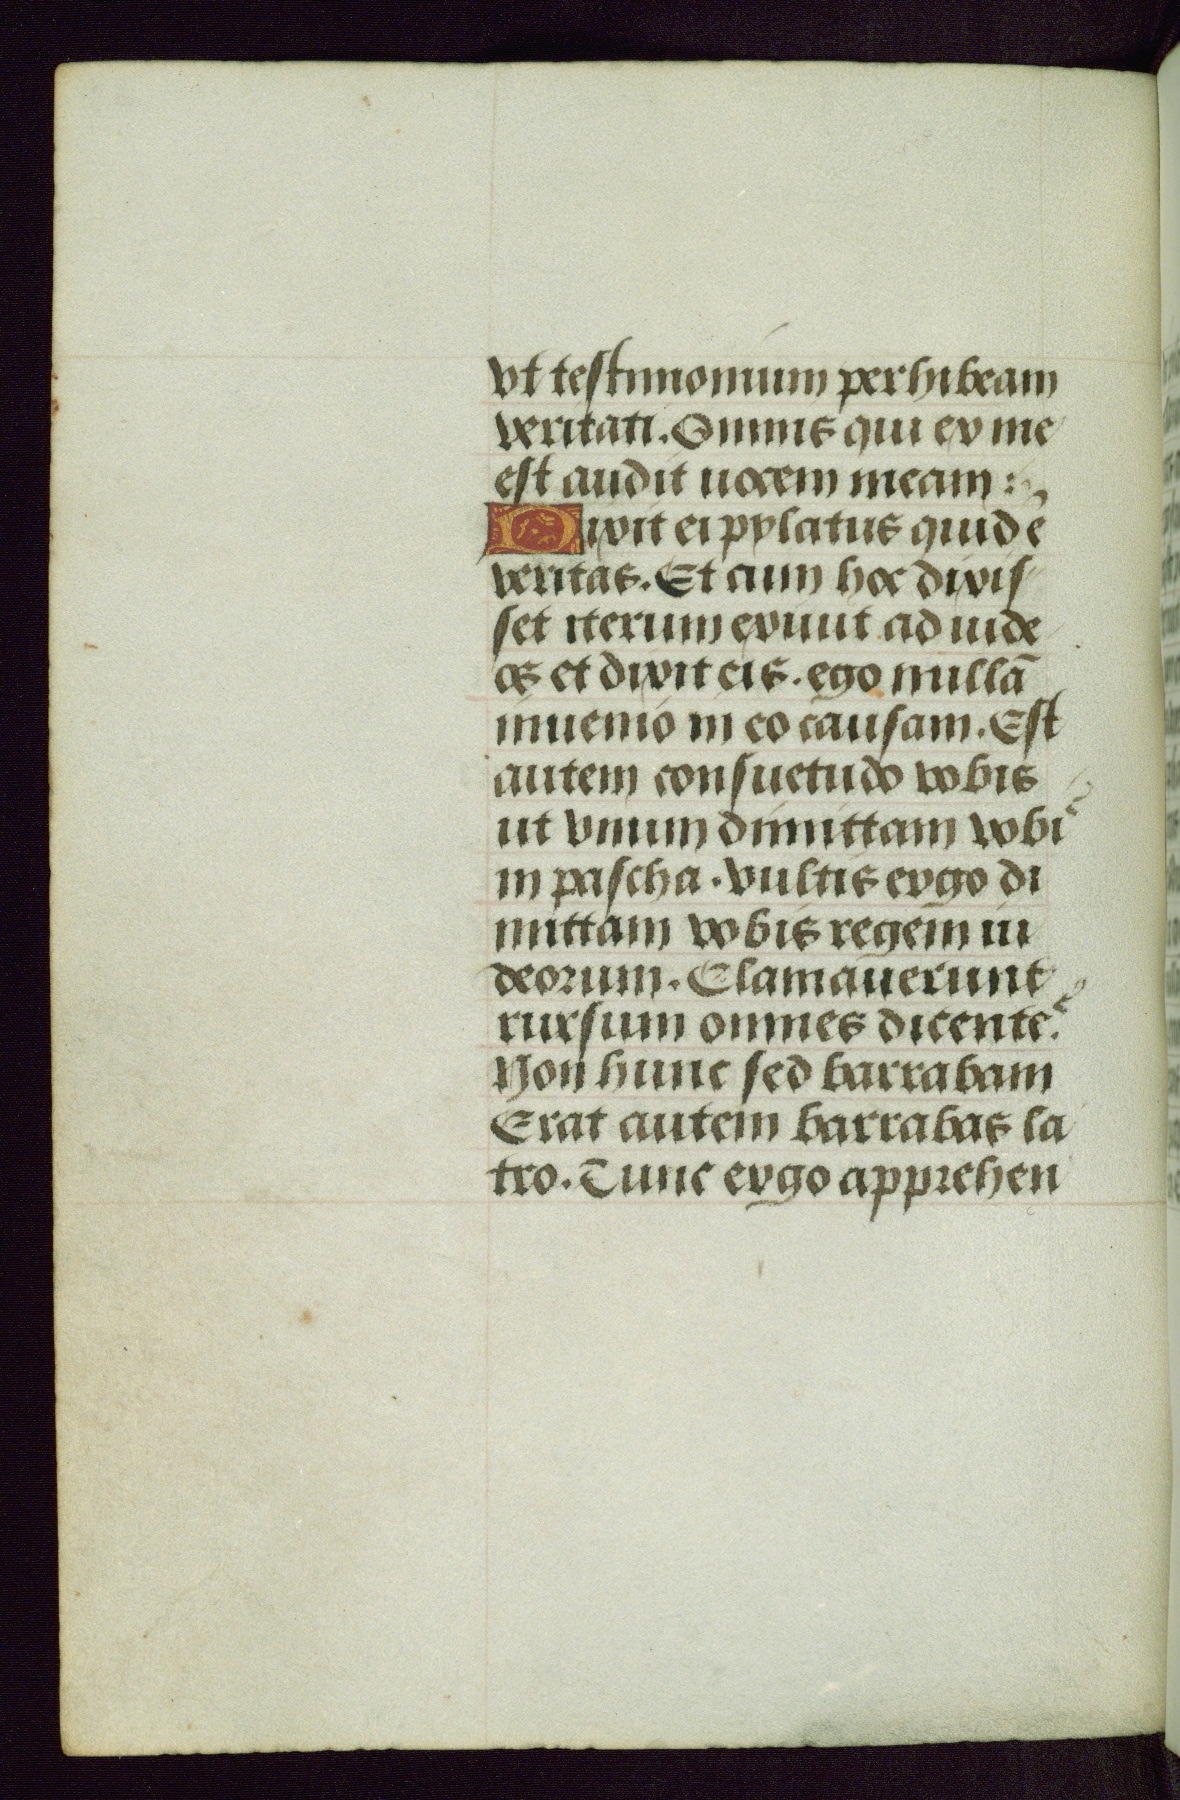 vt testimonium perhibeam
veritati. Omnis qui ex me
est audit uocem meam:
Dixit ei pylatus quid ē
veritas. Et cum hoc dixis
set iterum exiuit ad iude
os et dixit eis. ego nullā
inuenio in eo causam. Est
autem consuetudo vobis
ut vnum dimittam vobis
in pascha. vultis ergo di
mittam vobis regem iu
deorum. Clamauerunt
rursum omnes dicentes.
Non hunc sed barrabam
Erat autem barrabas la
tro. Tunc ergo apprehen